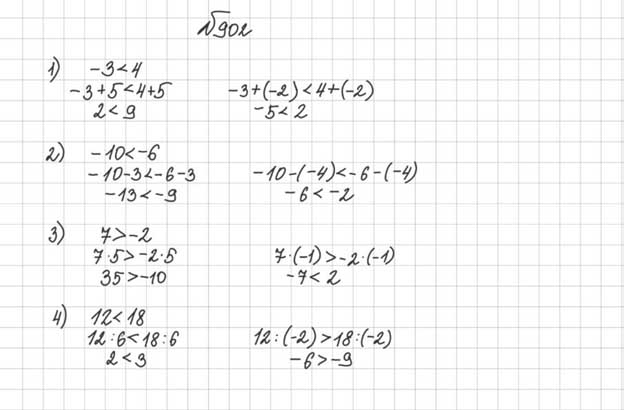 №902
1) -3<4
-3+5<4+5 -3+(-2)<4+(-2)
2<9 -5<2
2) -10<-6
-10-3<-6-3 -10-(-4)<-6-(-4)
-13<-9 -6<-2
3) 7>-2
7·5>-2·5 7·(-1)>-2·(-1)
35>-10 -7<2
4) 12<18
12:6<18:6 12:(-2)>18:(-2)
2<3 -6>-9